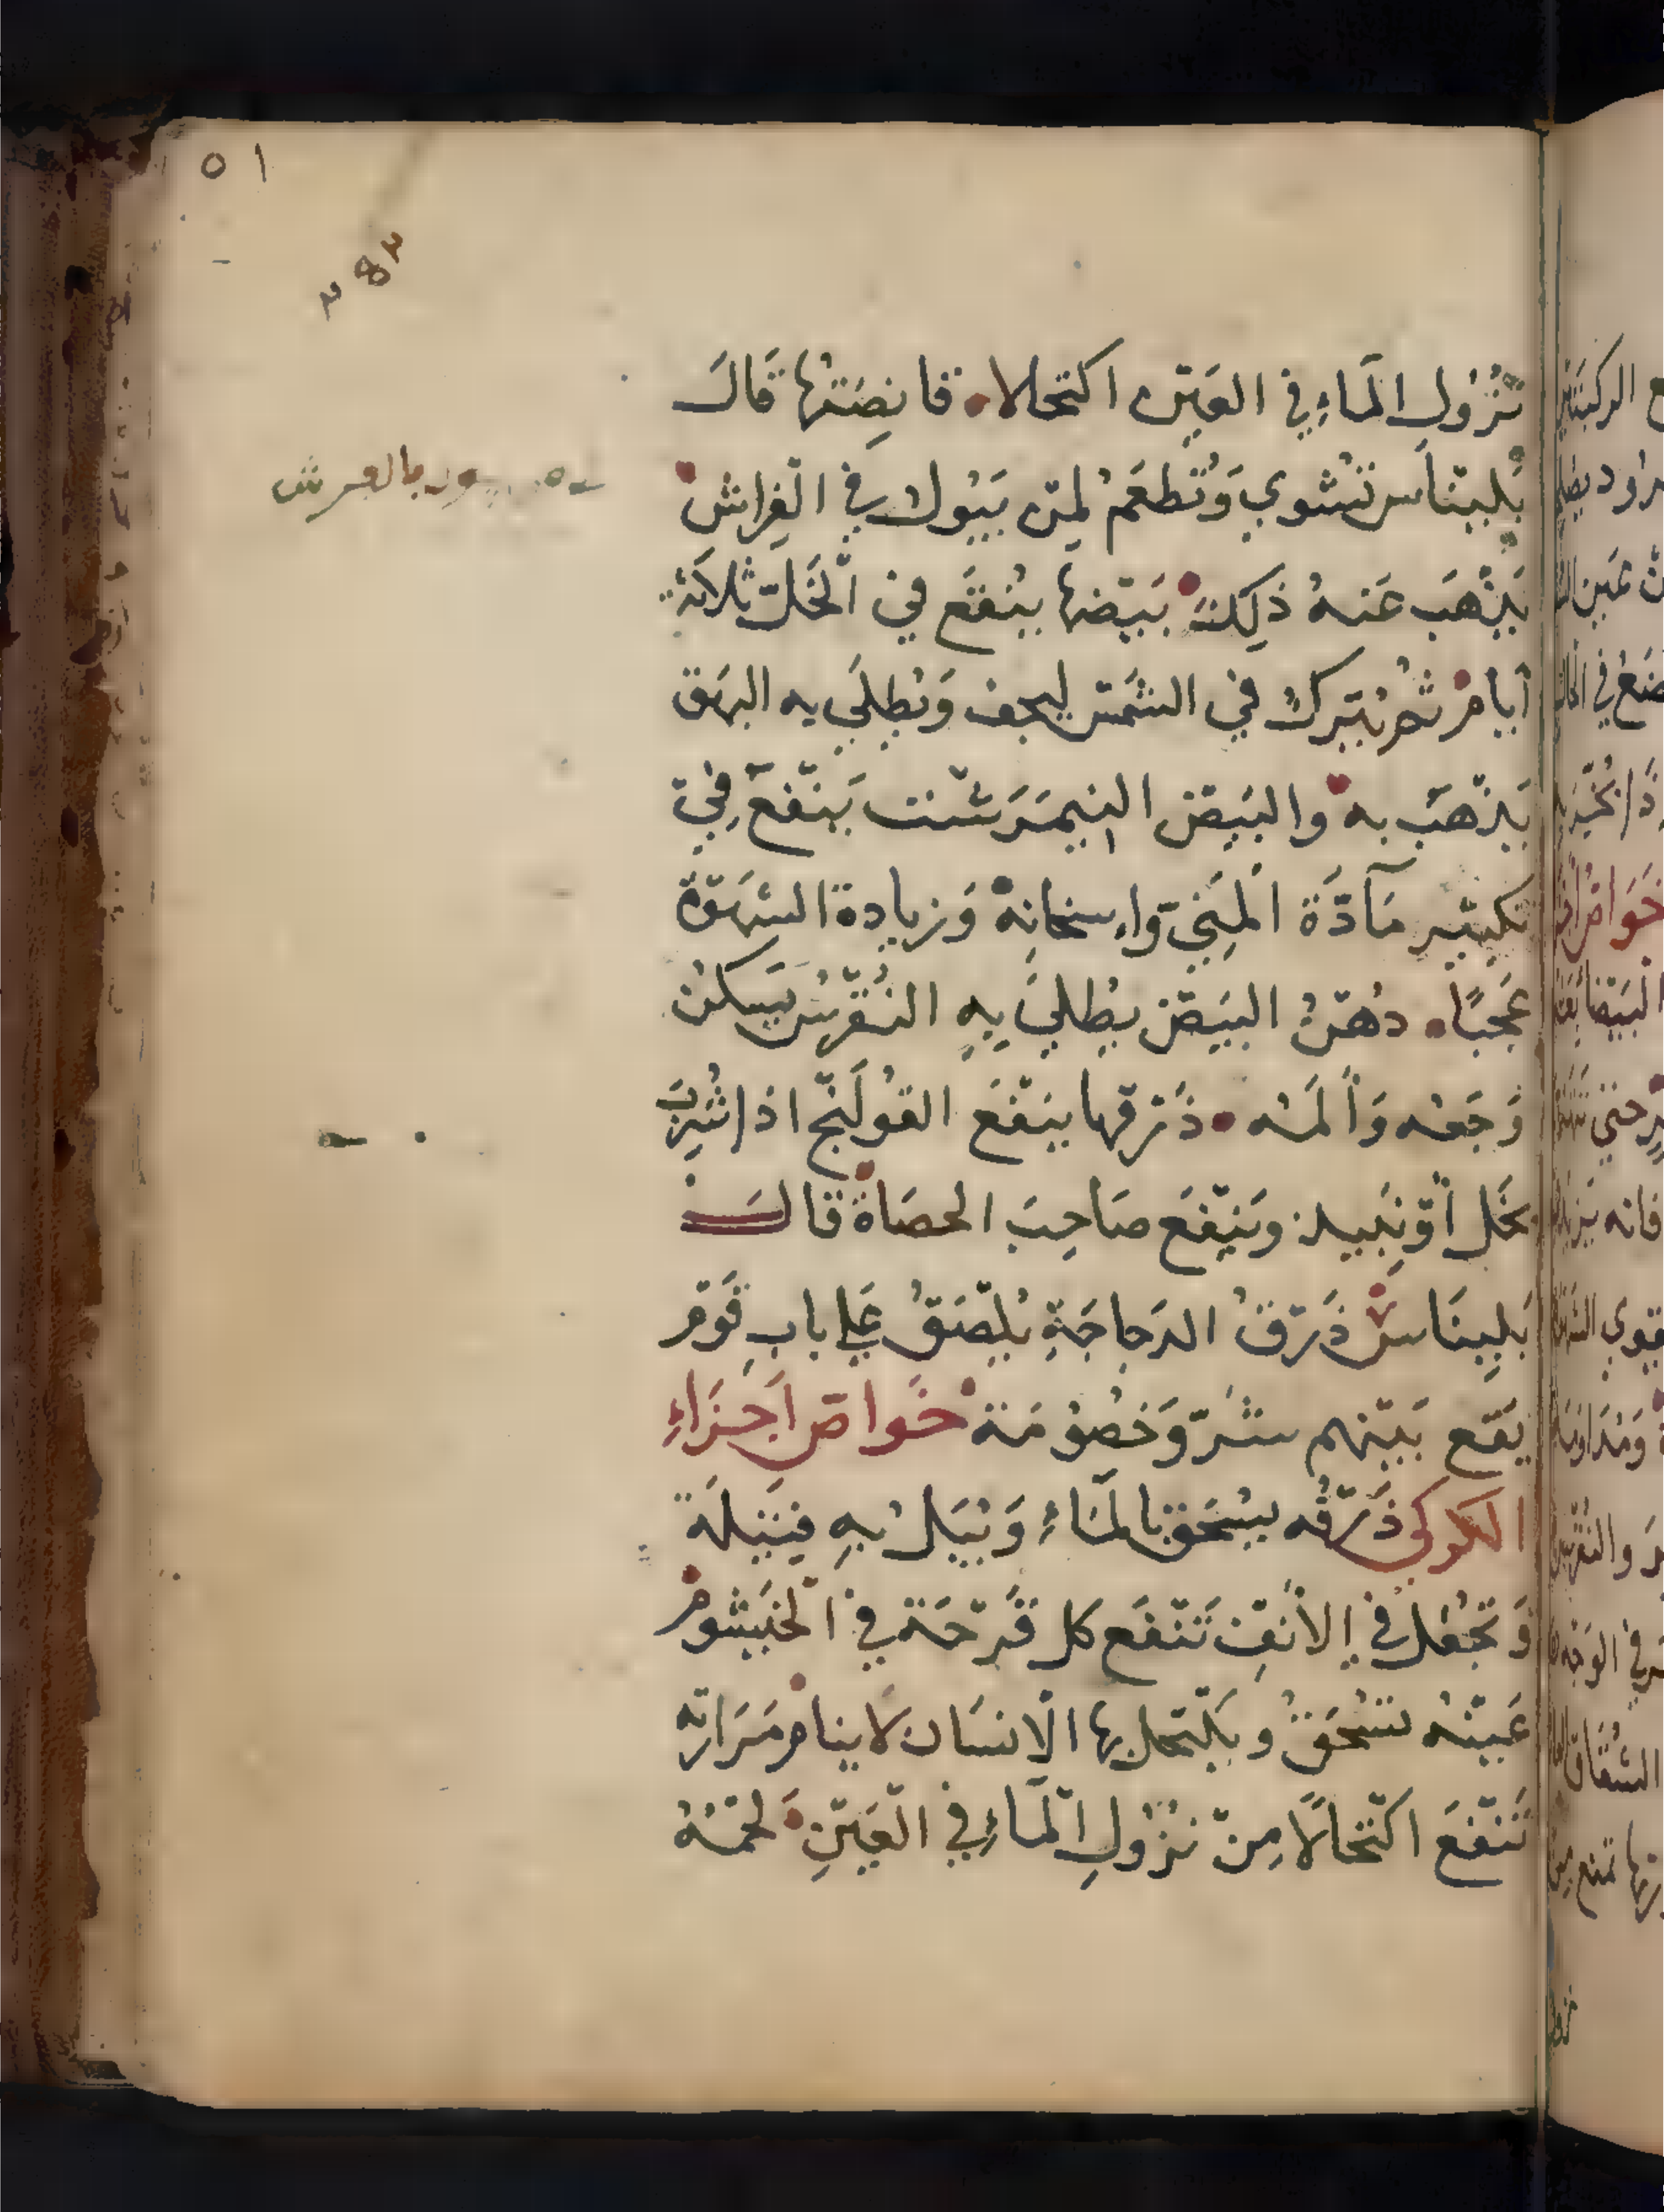 ٥١
نُزُولِ المَاءِ في العَيْن اكتحلا۰ قانصَتُها قَالَ
بَلِيْنَاس تشوي وَتُطعَمُ لمن يَبُول في الفِراش
يَذْهَب عَنهُ ذلِكَ بَيْضها يُنقَع في الخَلّ ثلاثة
أيام ثم يُترك في الشمس ليجف وَيُطلَي به البهق
يَذْهَب به والبَيض النيمَرَشت يَنفَع في
تكثير مَادَّة المَنِيّ واسخانِه وَزيادة الشهوَة
عَجبًا۰ دُهنُ البَيض يُطلَي بِهِ النُقرس يَسكن
وَجعُه وَألَمُه۰ ذَرقها يَنفَع القولَنج اذا شُرِبَ
بخل أو نَبيد ويَنفَع صَاحِبَ الحصَاة قال
بَلِينَاس ذَرقُ الدجاجَةِ يُلصَقُ عَلي باب قَوم
يقَع بَينهم شَرّ وَخصُومَة خَواص أجزَاءِ
الكركي ذَرقُه يُسْحَق بالمَاءِ وَيُبَل بِهِ فتيلَة
وَتُجعَل في الأنفِ تَنفَع كل قَرحَة في الخَيشوم
عَينُه تُسْحَقُ ويكتحل بها الانسَان لا ينام مَرَارتِه
تَنفَع اكتحالًا مِن نزُولِ المَاءِ في العَينِ لَحمُهُ